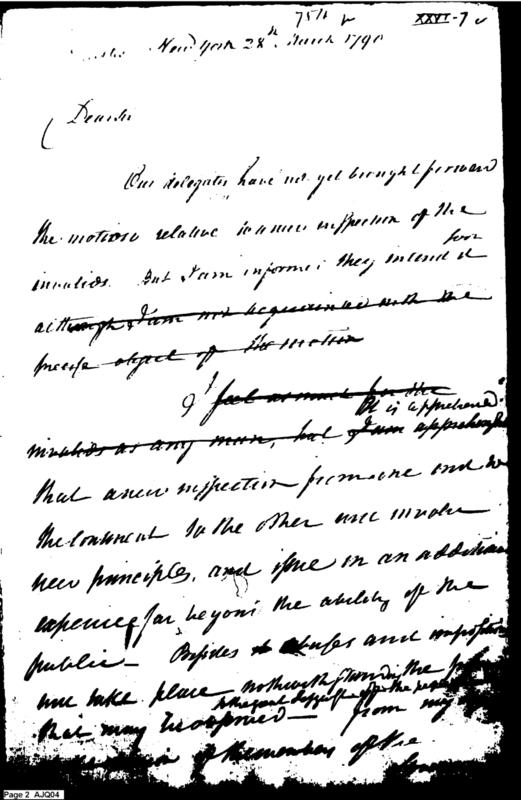 75th
XXVI-7
New York 28th March 1790
Dear sir
Our delegates have not yet brought forward
the motion relative to a new inspection of the
soon
invalids. But I am informed they intend it
although I am not acquainted with the
precise object of the motion
I feel as much for the
It is apprehended
invalids as any man, but I am apprehensive
that a new inspection from one end
the continent to the other will involve
new principles, and issue in an additional
expence far beyond the ability of the
public - Besides abuses and impositions
will take place notwithstanding the
the
that may be opposed - from my
of the members of the
Page 2 AJQ04